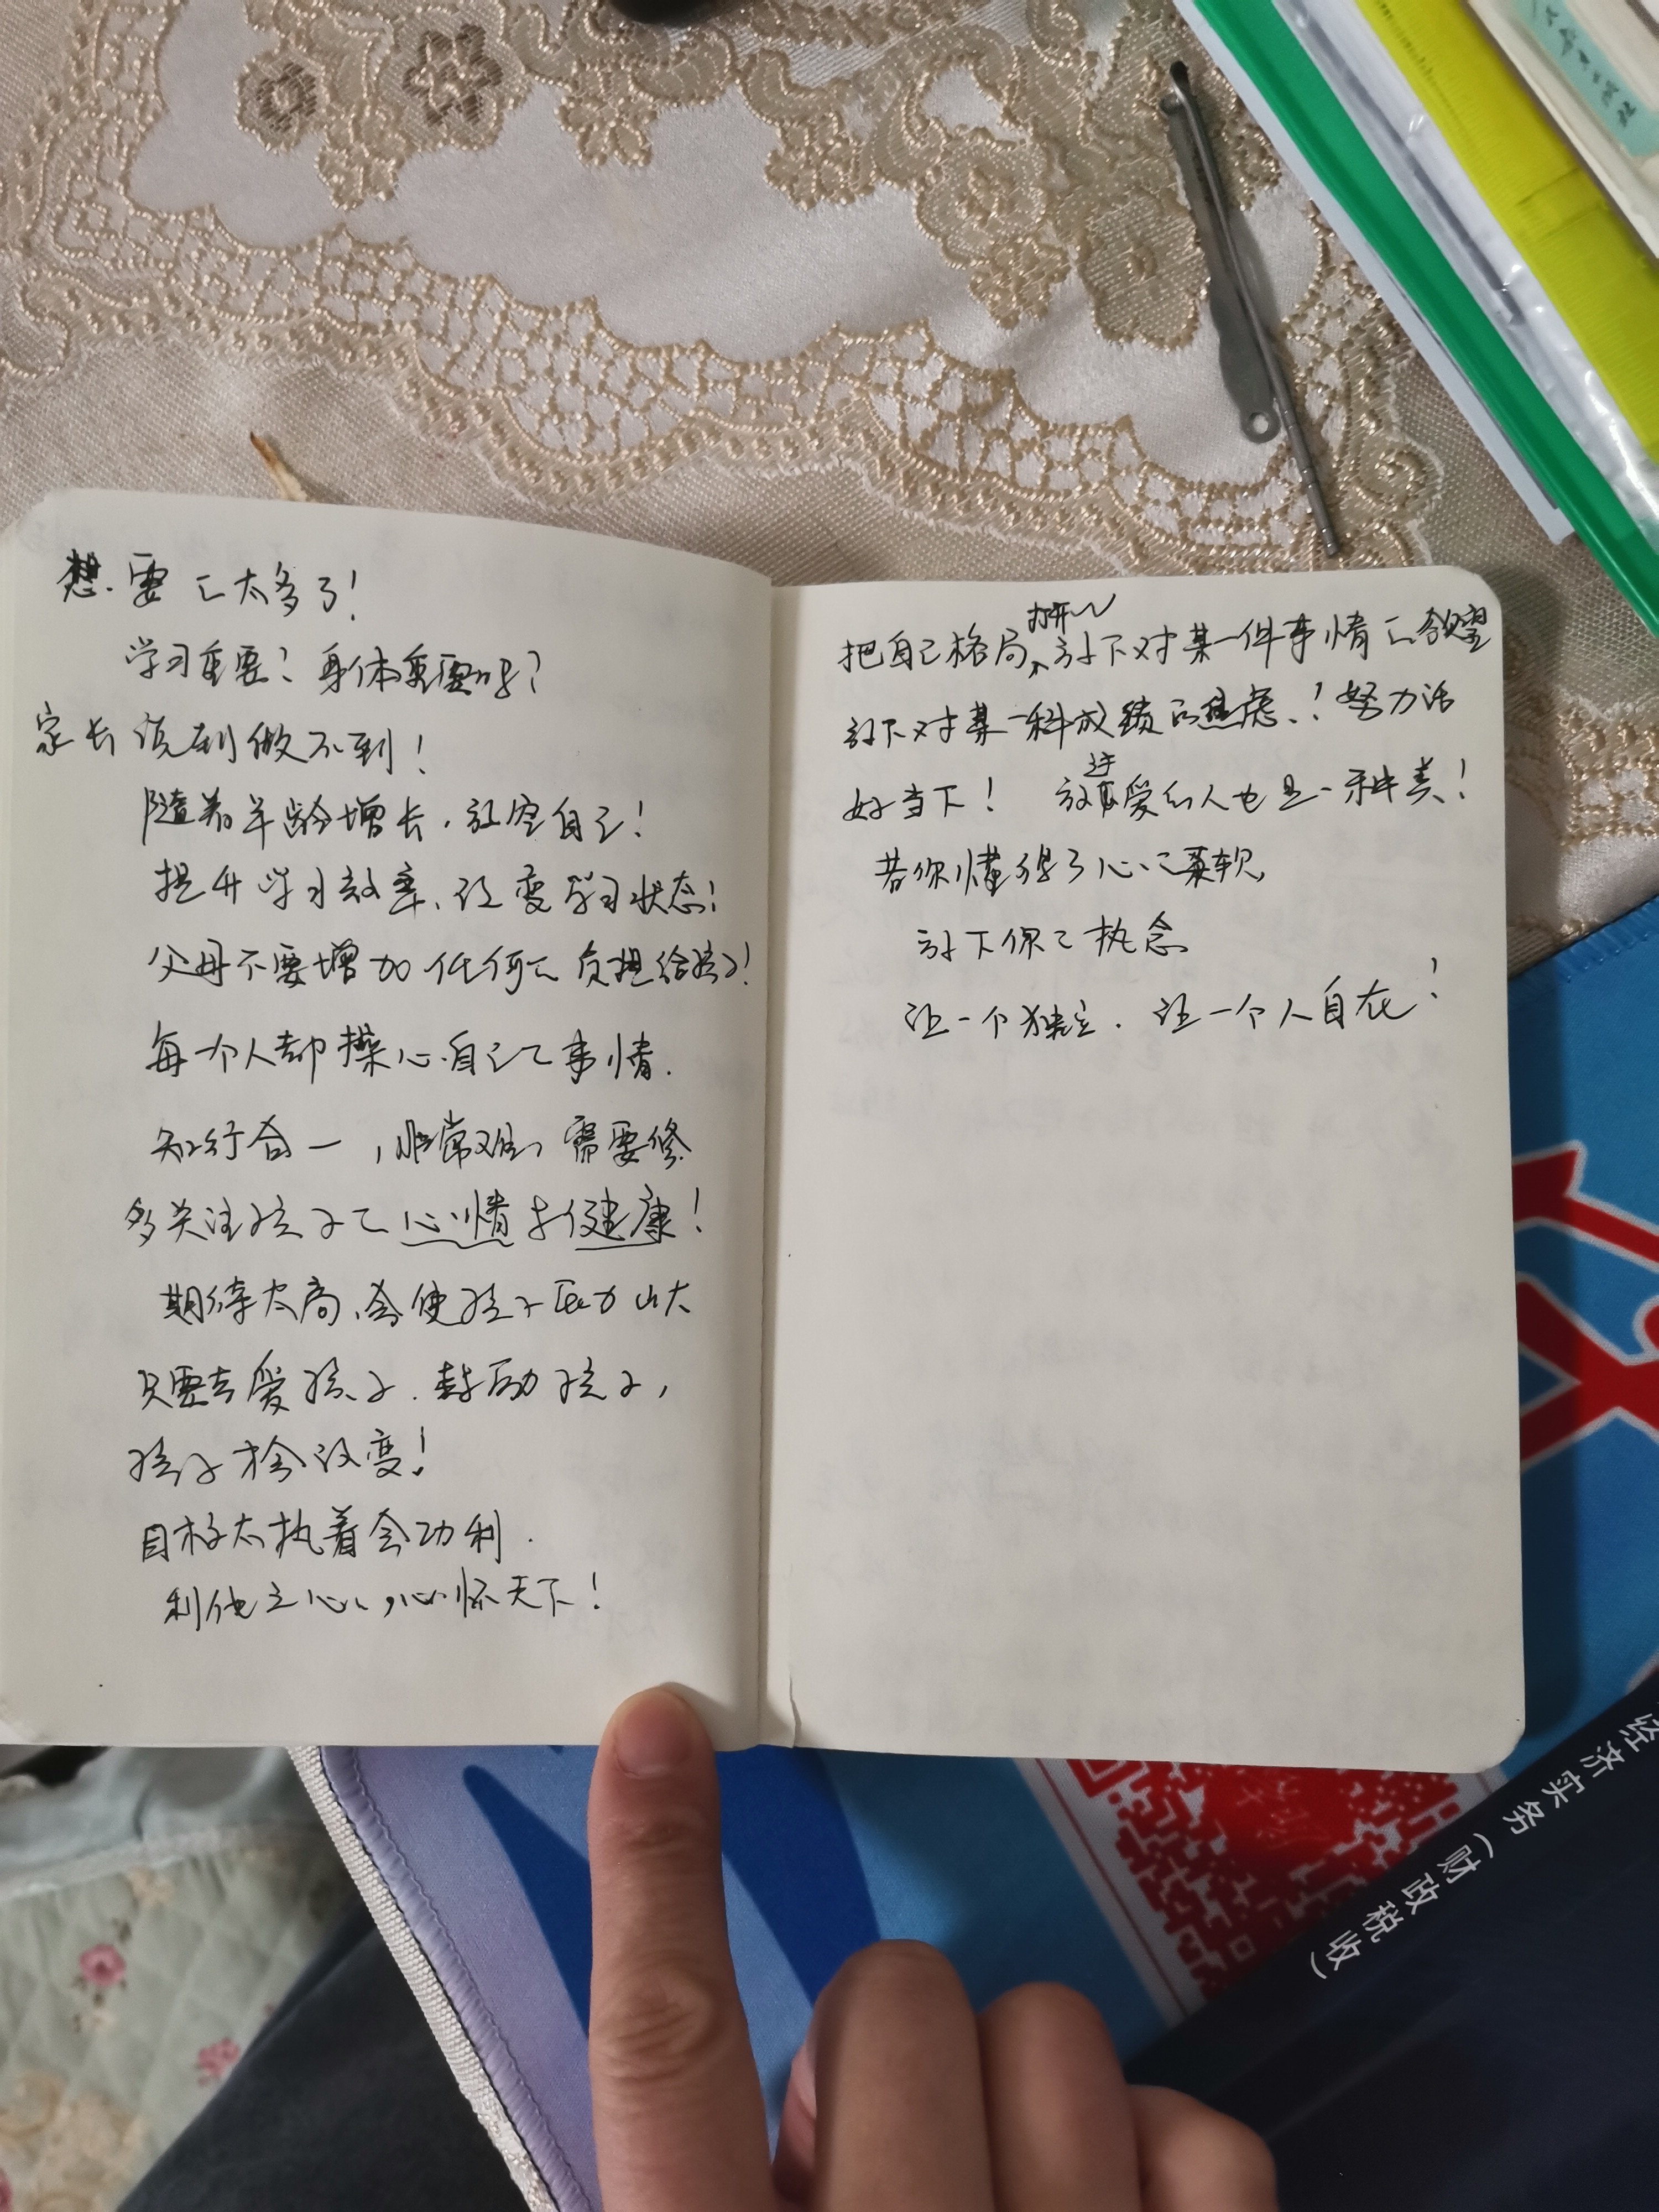 想要的太多了！
学习重要？身体重要呢？
家长说到做不到！
随着年龄增长，放空自己！
提升学习效率、改变学习状态！
父母不要增加任何的负担给孩子！
每个人都操心自己的事情.
知行合一，非常难，需要修
多关注孩子的心情与健康！
期待太高、会使孩子压力山大
只要去爱孩子.鼓励孩子，
孩子才会改变！
目标太执着会功利.
利他之心，心怀天下！
打开
把自己格局，放下对某一件事情的欲望
放下对某一科成绩的焦虑、！努力活
好当下！ 放过爱的人也是一种美！
若你懂得了心的柔软，
放下你的执念
让一个独立.让一个人自在！
经济实务（财政税收）